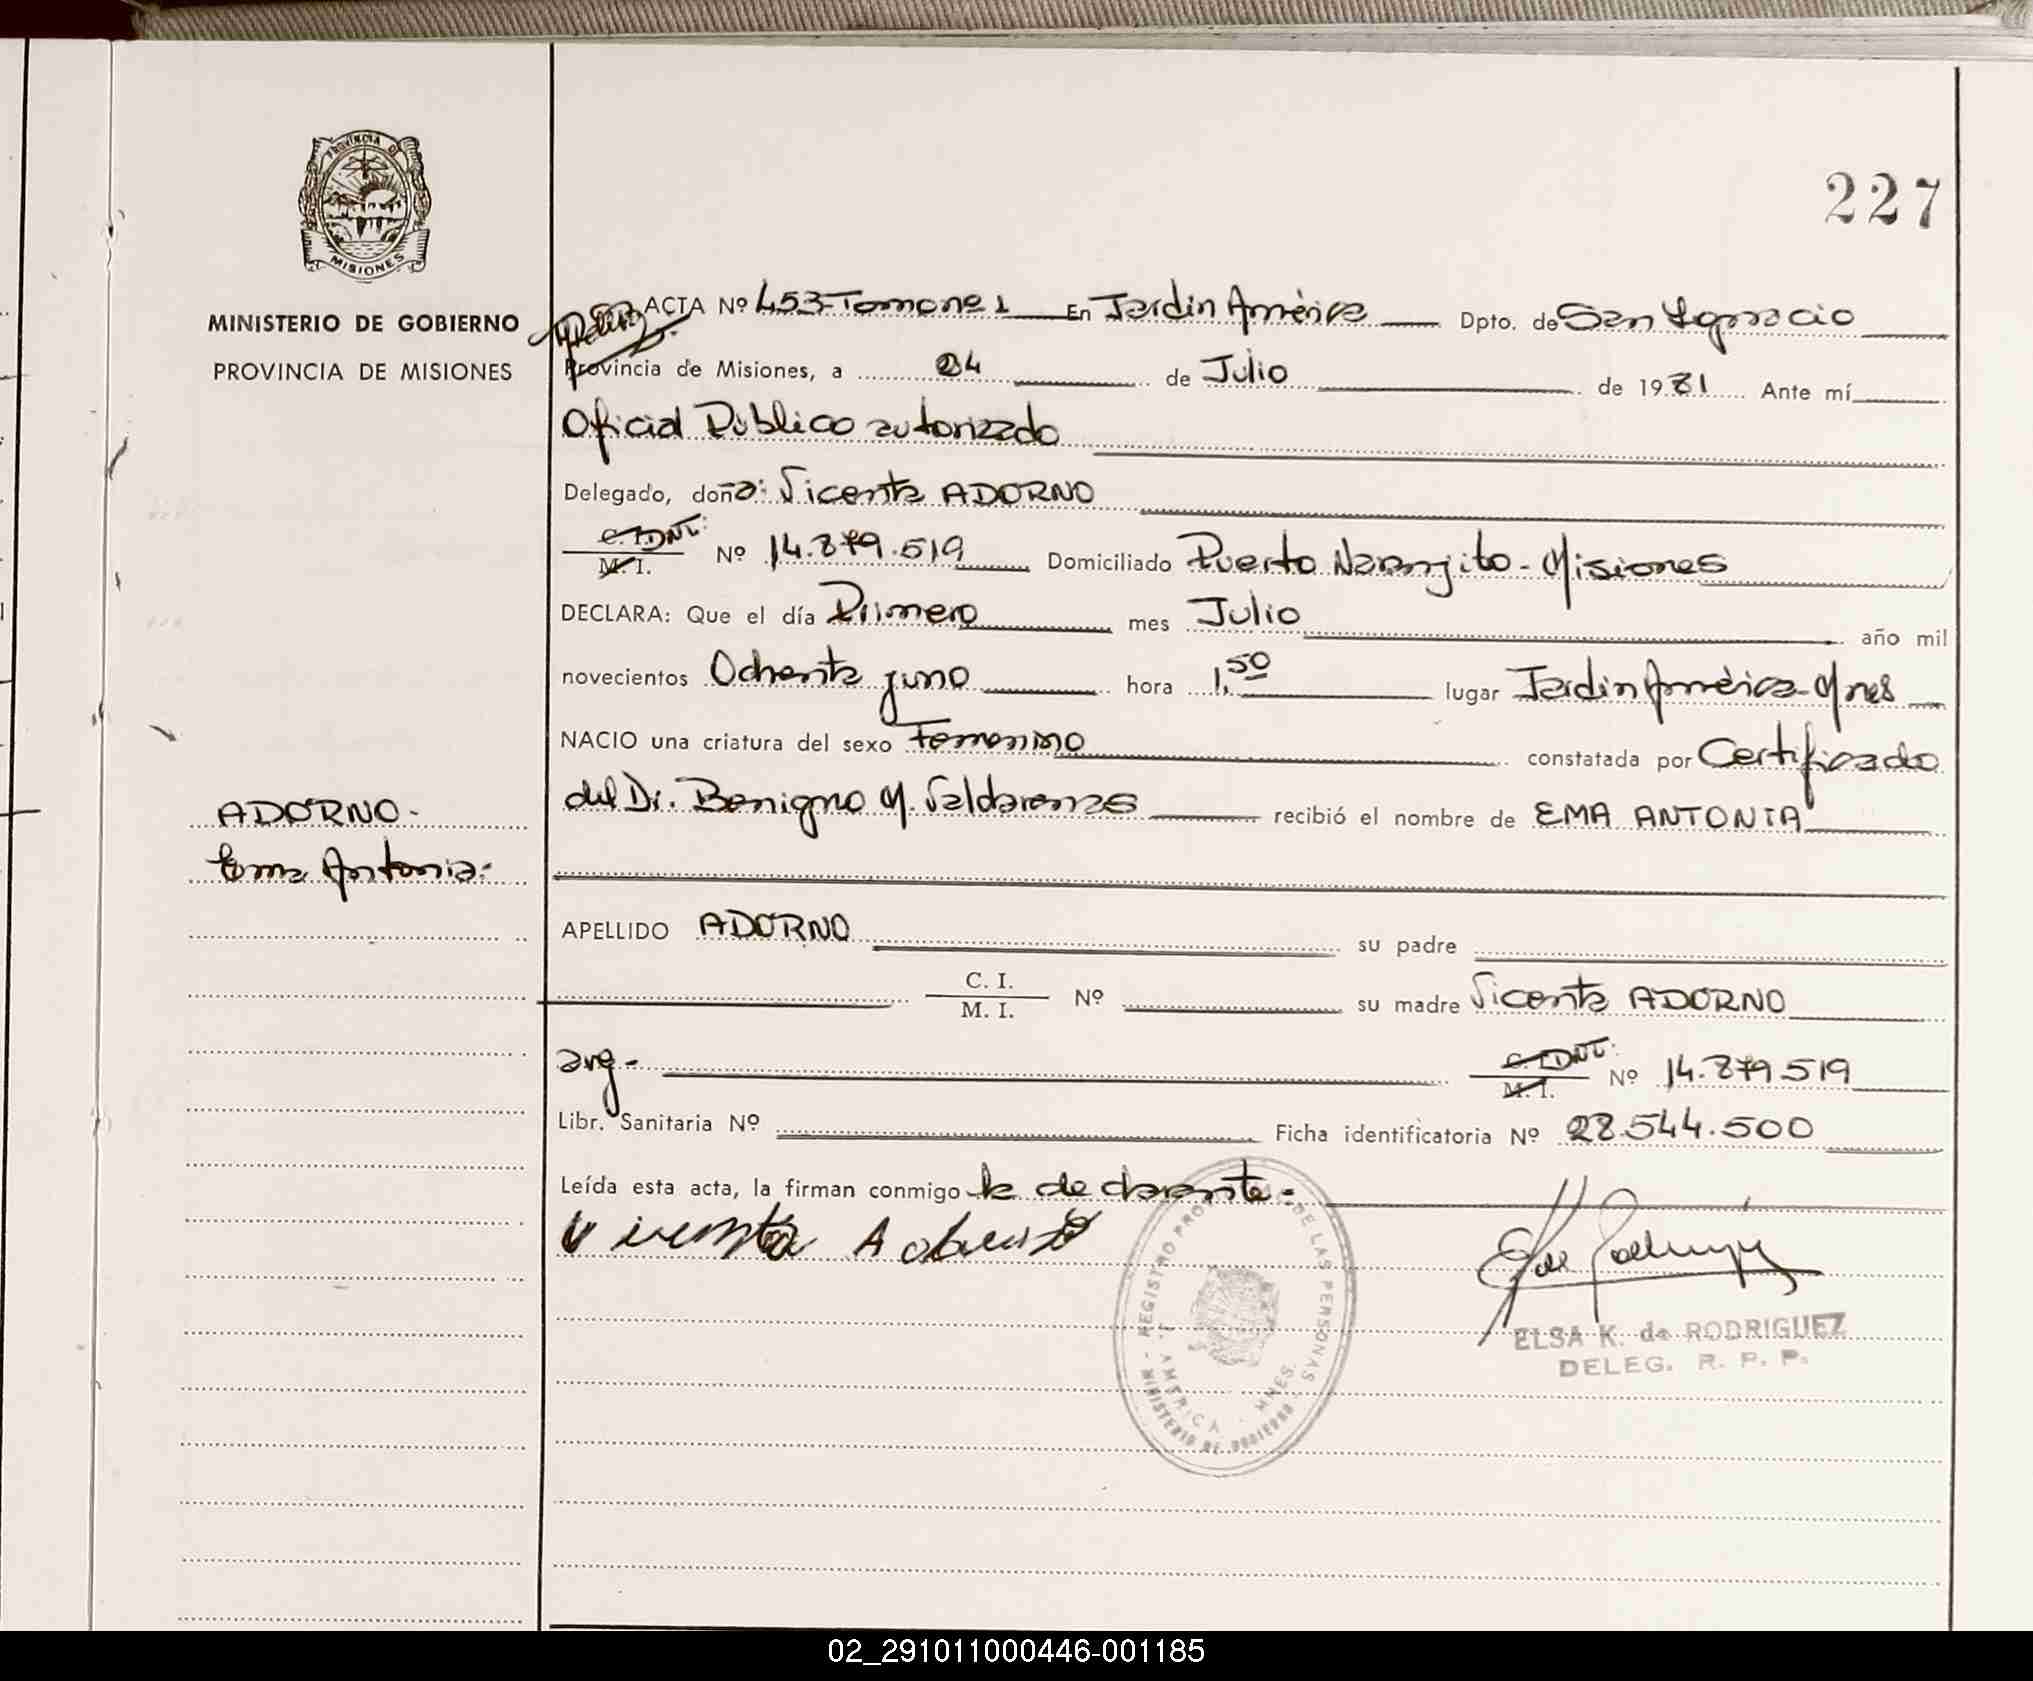 PROVINCIA DE
MISIONES
MINISTERIO DE GOBIERNO
PROVINCIA DE MISIONES
227
ACTA Nº 453-Tomone 1 En Jardin América Dpto. de San Ignacio
Provincia de Misiones, a 24 de Julio de 1981 Ante mí
Oficial Público autorizado
Delegado, doña: Vicenta ADORNO
C. I. DNI: M. I. Nº 14.879.519 Domiciliado Puerto Naranjito - Misiones
DECLARA: Que el día Primero mes Julio año mil
novecientos Ochenta yuno hora 1,50 lugar Jardin América-Mnes
NACIO una criatura del sexo Femenino constatada por Certificado
del Dr. Benigno M. Valdarenas recibió el nombre de EMA ANTONIA
ADORNO-
Ema Antonia:
APELLIDO ADORNO su padre
C. I. M. I. Nº su madre Vicenta ADORNO
arg- C. I. DNI: M. I. Nº 14.879.519
Libr. Sanitaria Nº Ficha identificatoria Nº 28.544.500
Leída esta acta, la firman conmigo la declarante-
Vicenta Adorno
ELSA K. de RODRIGUEZ
DELEG. R. P. P.
REGISTRO PROV. DE LAS PERSONAS
J. AMERICA - MNES.
MINISTERIO DE GOBIERNO
02_291011000446-001185